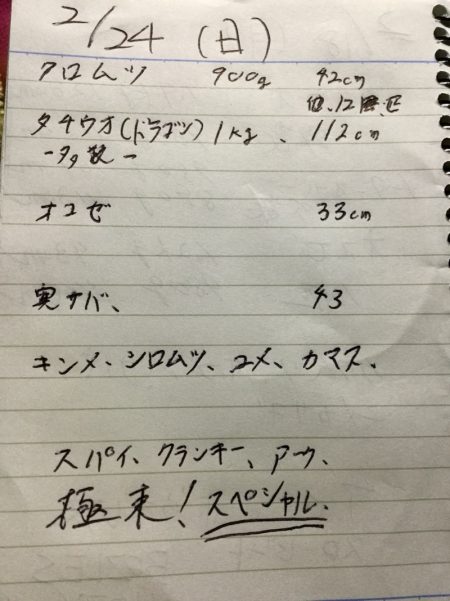 2/24 (日)
クロムツ 900g 42cm
他、12匹
タチウオ(ドラゴン) 1kg、112cm
ー多数ー
オコゼ 33cm
サバ、 43
キンメ、シロムツ、ユメ、カマス、
スパイ、クランキー、アーウ、
極東! スペシャル、